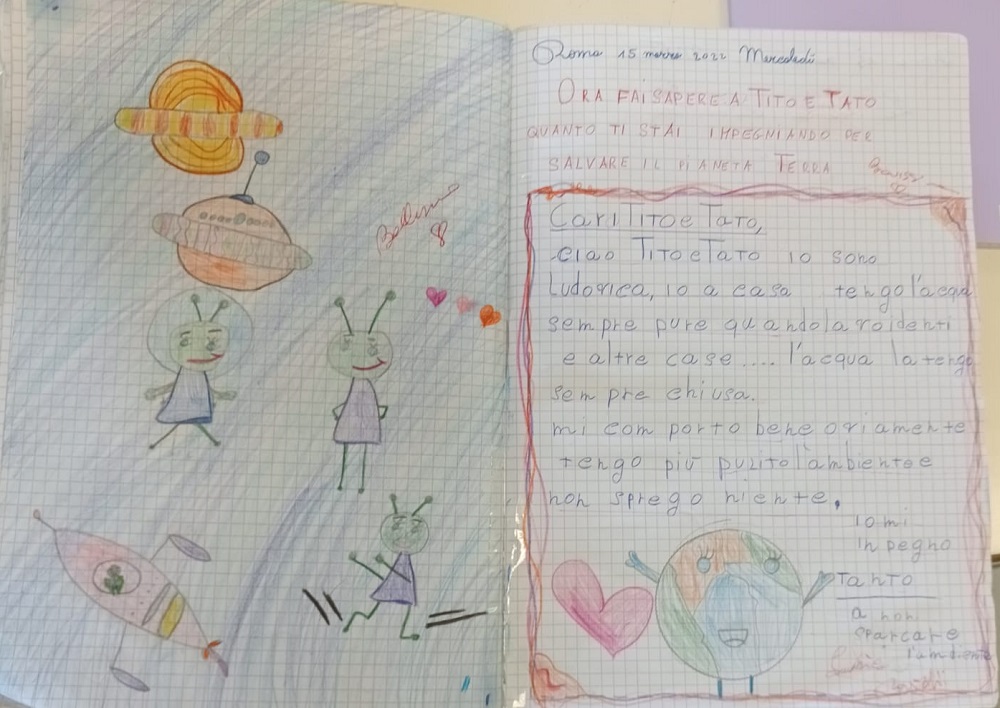 Bellissimo
Roma 15 marzo 2022 Mercoledì
ORA FAI SAPERE A TITO E TATO
QUANTO TI STAI IMPEGNIANDO PER
SALVARE IL PIANETA TERRA
Cari TITO e TATO,
ciao TITO e TATO io sono
Ludovica, io a casa tengo l'acqua
sempre pure quando la
e altre case.... l'acqua la tengo
sempre chiusa.
mi comporto bene
tengo più pulito l'ambiente e
non sprego niente.
io mi
inpegno
TanTO
a non
sparcare
l'ambiente